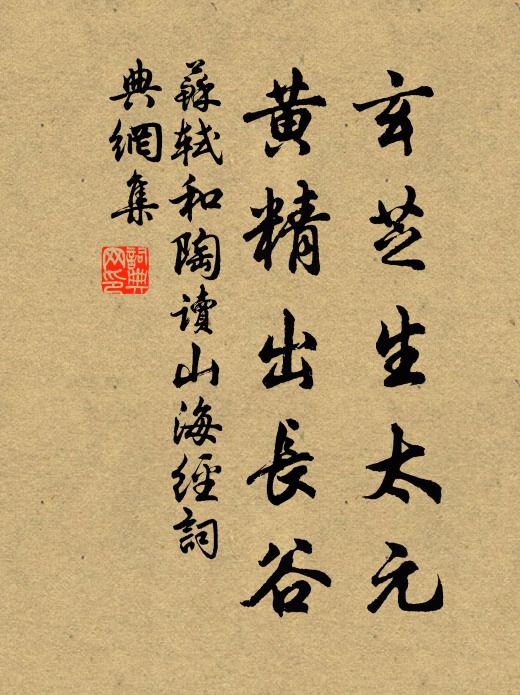 玄芝生太元
黄精出長谷
蘇軾和陶讀山海經詞
典網集
詞典
网印